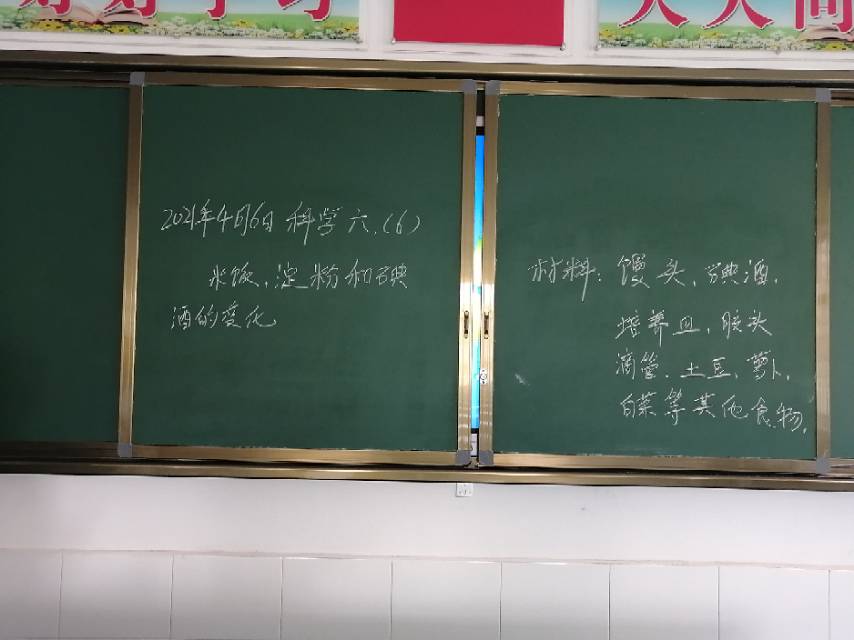 好好学习
天天向
2021年4月6日 科学 六.(6)
米饭、淀粉和碘
酒的变化
材料:馒头、碘酒、
培养皿、胶头
滴管、土豆、萝卜、
白菜等其他食物.